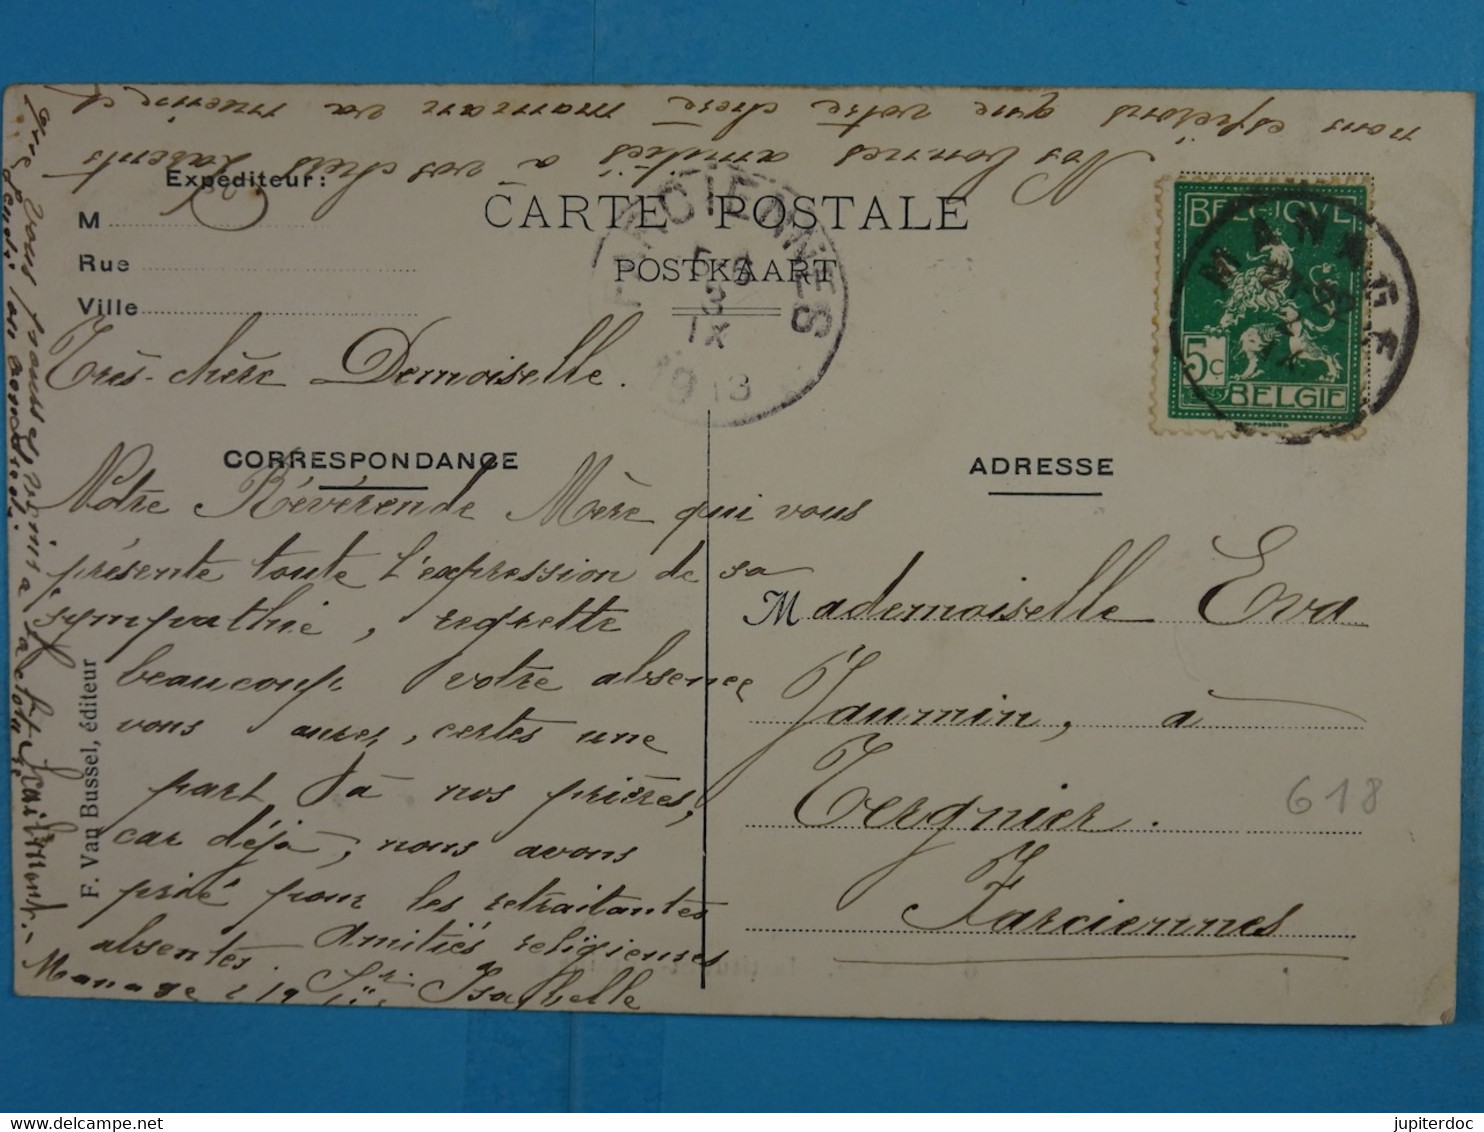 Expéditeur:
M
Rue
Ville
CARTE POSTALE
POSTKAART
FARCIENNES
3
IX
1913
BELGIQUE
5c
BELGIE
MANAGE
CORRESPONDANCE
Très-chère Demoiselle.
Notre Révérende Mère qui vous
présente toute l'expression de sa
sympathie, regrette
beaucoup votre absence
vous aurez, certes une
part à nos prières,
car déjà, nous avons
prié pour les retraitantes
absentes. Amitiés religieuses
Manage Sr. Isabelle
que vous puissiez venir
Nos bonnes amitiés à vos chers Parents
nous espérons que votre chère maman va mieux et
F. Van Bussel, éditeur
ADRESSE
Mademoiselle Eva
Jaumin, à
Tergnier.
Farciennes
618
jupiterdoc